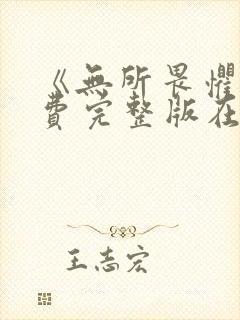 《無所畏懼
費完整版在
王志宏